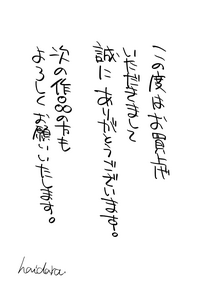 この度はお買上げ
いただきまして
誠にありがとうございます。
次の作品の方も
よろしくお願いいたします。
haidara